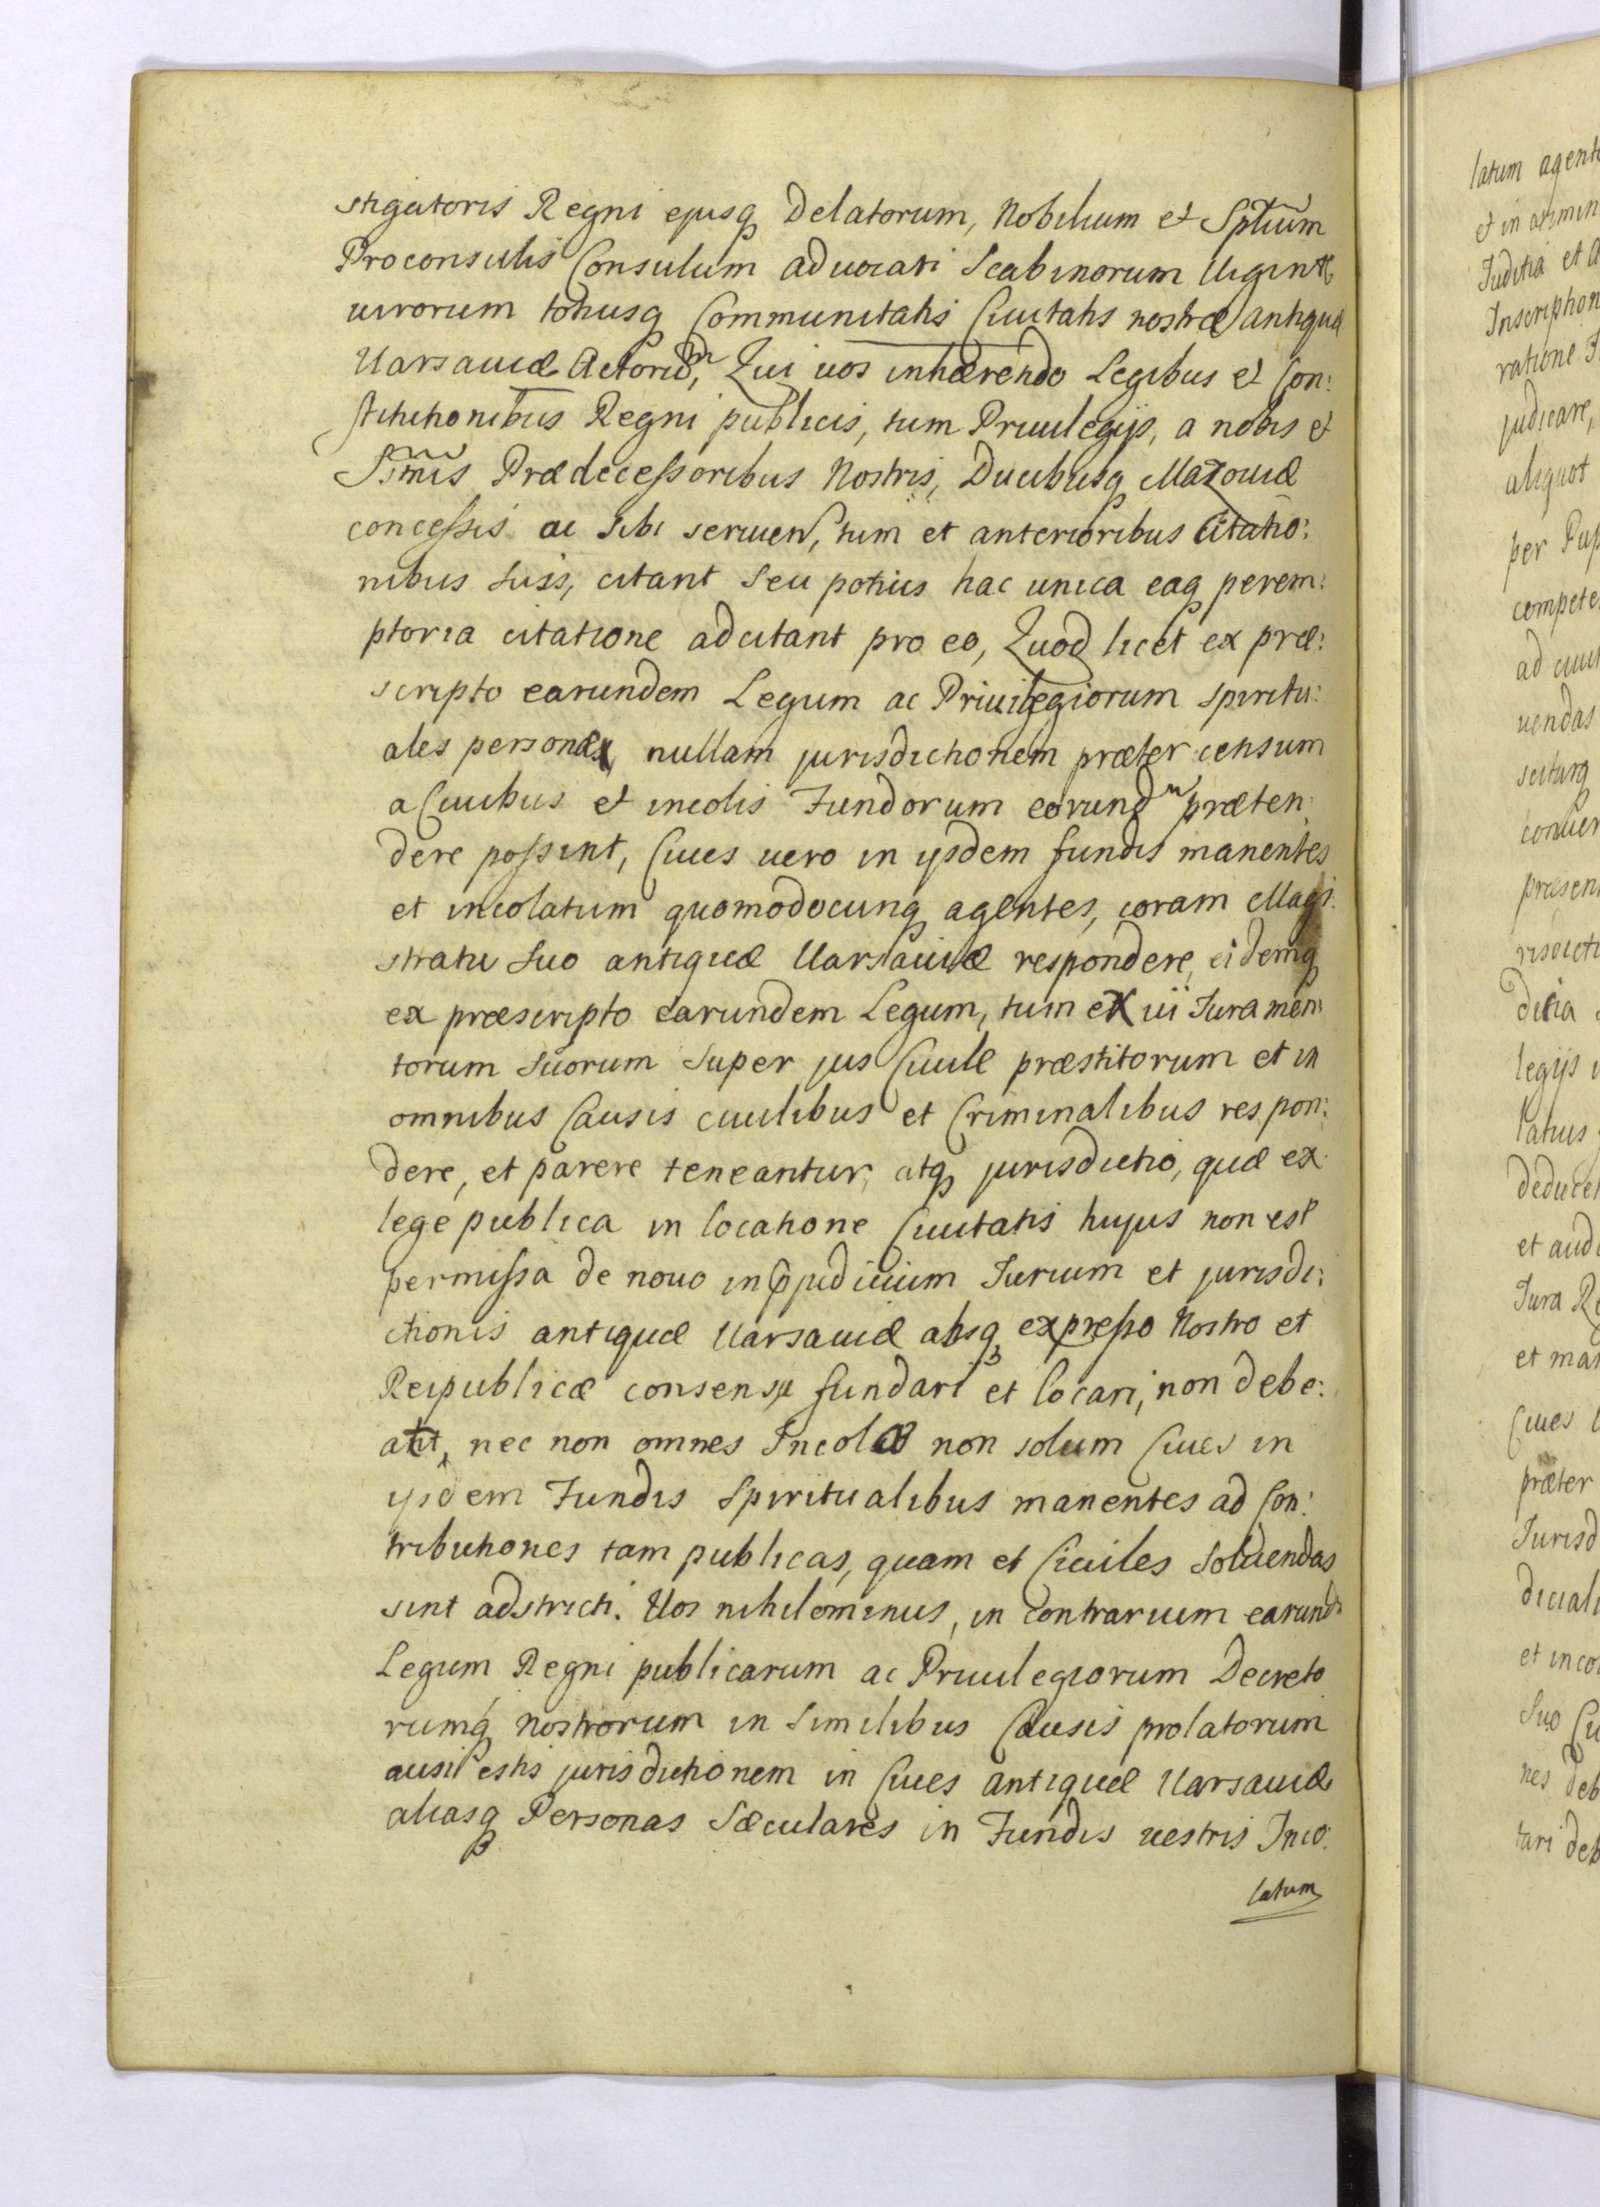 stigatoris Regni ejusq Delatorum, Nobilium et Sptium
Proconsulis Consulum aduocati Scabinorum Uiginti
uirorum totiusq Communitatis Ciuitatis nostræ antiquæ
Uarsauiæ Actorum, Qui uos inhærendo Legibus et Con:
stitutionibus Regni publicis, tum Priuilegijs, a nobis et
Ssmis Prædecessoribus Nostris, Ducibusq Mazouiæ
concessis ac sibi seruien, tum et anterioribus Citatio:
nibus suis, citant seu potius hac unica eaq perem:
ptoria citatione adcitant pro eo, Quod licet ex præ:
scripto earundem Legum ac Priuilegiorum spiritu:
ales personæ, nullam jurisdictionem præter censum
a Ciuibus et incolis Fundorum eorundm præten:
dere possint, Ciues uero in ijsdem fundis manentes
et incolatum quomodocunq agentes, coram Magi:
stratu suo antiquæ Uarsauiæ respondere, eidemq
ex præscripto earundem Legum, tum ex ui Juramen:
torum suorum super jus Ciuile præstitorum et in
omnibus Causis ciuilibus et Criminalibus respon:
dere, et parere teneantur, atq jurisdictio, quæ ex
lege publica in locatione Ciuitatis hujus non est
permissa de nouo in pjudicium Jurium et jurisdi:
ctionis antiquæ Uarsauiæ absq expresso Nostro et
Reipublicæ consensu fundari et locari, non debe:
at, nec non omnes Incolæ non solum Ciues in
ijsdem Fundis Spiritualibus manentes ad Con:
tributiones tam publicas, quam et Ciuiles soluendas
sint adstricti. Uos nihilominus, in contrarium earund
Legum Regni publicarum ac Priuilegiorum Decreto
rumq nostrorum in similibus Causis prolatorum
ausi estis jurisdictionem in Ciues antiquæ Uarsauiæ
aliasq Personas Sæculares in Fundis uestris Inco:
latum
latum
et in
Juditia et
ratione
judicare,
aliquot
per
uendas
legijs
et
Jura
et
Ciues
præter
et
suo